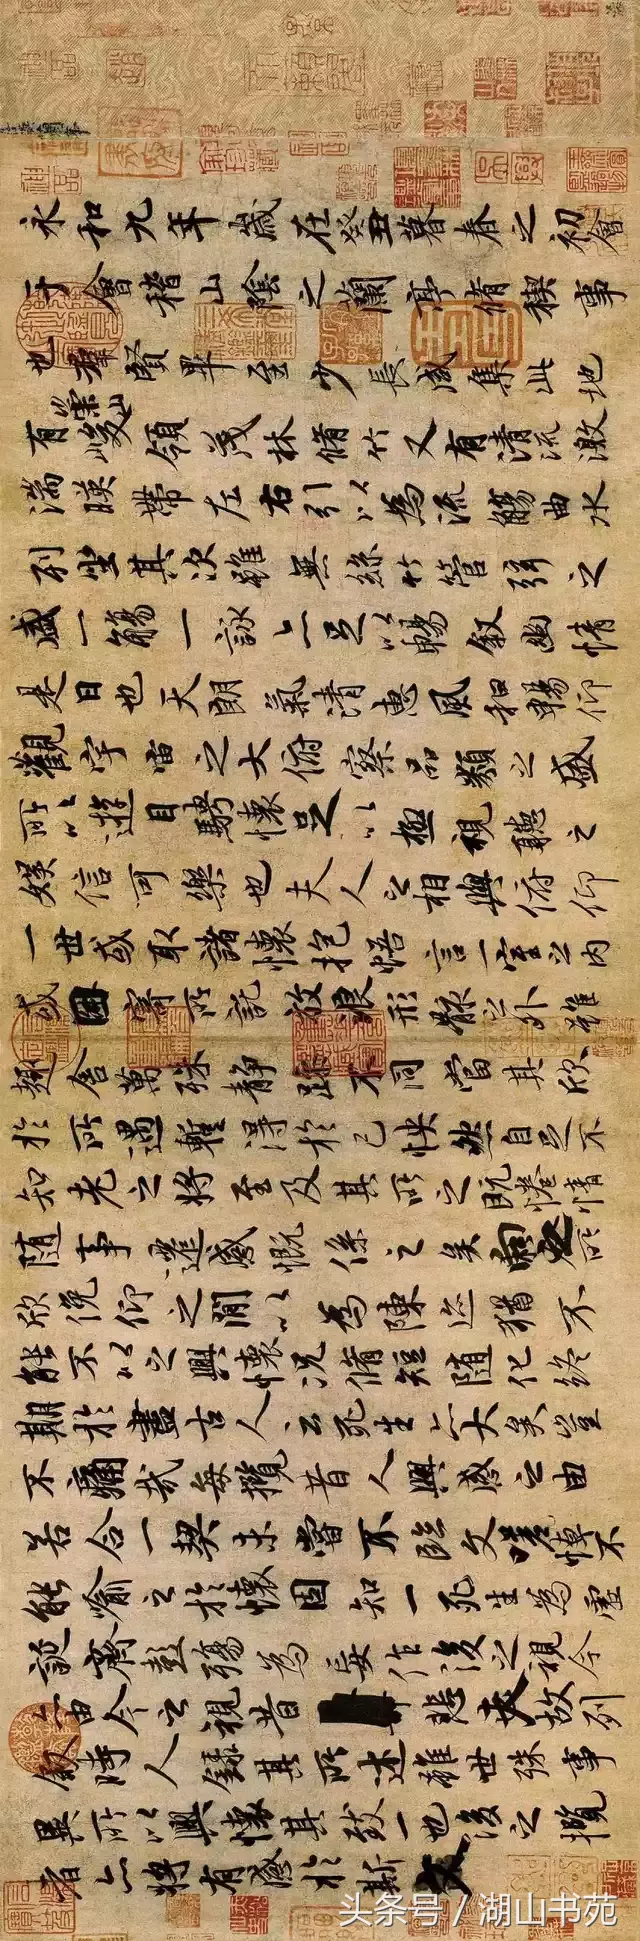 永和九年歲在癸丑暮春之初會
于會稽山陰之蘭亭脩稧事
也羣賢畢至少長咸集此地
有崇山峻領茂林脩竹又有清流激
湍暎帶左右引以為流觴曲水
列坐其次雖無絲竹管弦之
盛一觴一詠亦足以暢敘幽情
是日也天朗氣清惠風和暢仰
觀宇宙之大俯察品類之盛
所以遊目騁懷足以極視聽之
娛信可樂也夫人之相與俯仰
一世或取諸懷抱悟言一室之內
或因寄所託放浪形骸之外雖
趣舍萬殊靜躁不同當其欣
於所遇暫得於己怏然自足不
知老之將至及其所之既惓情
隨事遷感慨係之矣向之所
欣俛仰之閒以為陳迹猶不
能不以之興懷況脩短隨化終
期於盡古人云死生亦大矣豈
不痛哉每攬昔人興感之由
若合一契未嘗不臨文嗟悼不
能喻之於懷固知一死生為虛
誕齊彭殤為妄作後之視今
亦由今之視昔悲夫故列
敘時人錄其所述雖世殊事
異所以興懷其致一也後之攬
者亦將有感於斯文
头条号 / 湖山书苑